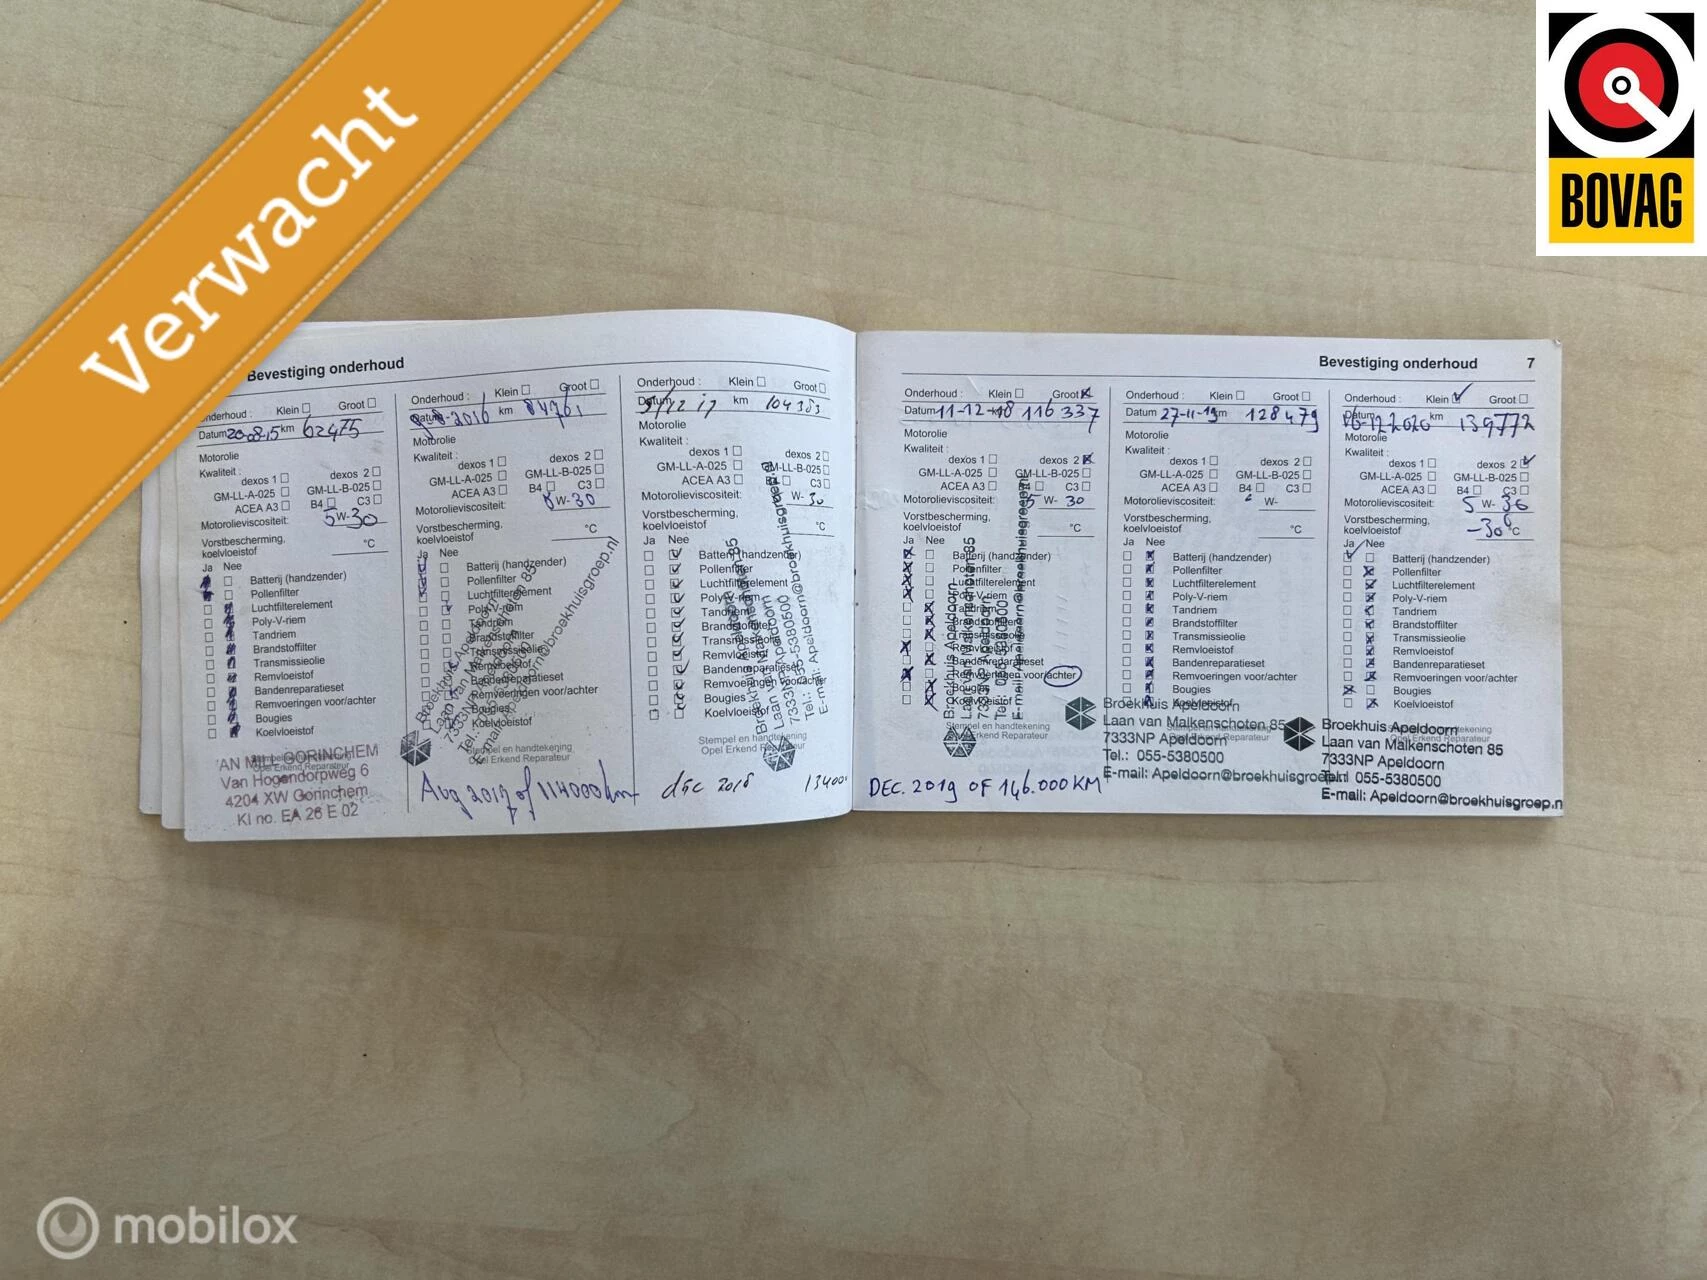 Verwacht
BOVAG
Bevestiging onderhoud
Onderhoud : Klein Groot
Datum 20-08-15 km 62475
Motorolie
Kwaliteit :
dexos 1 dexos 2
GM-LL-A-025 GM-LL-B-025
ACEA A3 B4 C3
Motorolieviscositeit: 5 W- 30
Vorstbescherming,
koelvloeistof °C
Ja Nee
Batterij (handzender)
Pollenfilter
Luchtfilterelement
Poly-V-riem
Tandriem
Brandstoffilter
Transmissieolie
Remvloeistof
Bandenreparatieset
Remvoeringen voor/achter
Bougies
Koelvloeistof
AN MILL GORINCHEM
Van Hogendorpweg 6
4204 XW Gorinchem
KI no. EA 26 E 02
Onderhoud : Klein Groot
Datum 2016 km 84761
Motorolie
Kwaliteit :
dexos 1 dexos 2
GM-LL-A-025 GM-LL-B-025
ACEA A3 B4 C3
Motorolieviscositeit: W- 30
Vorstbescherming,
koelvloeistof °C
Ja Nee
Batterij (handzender)
Pollenfilter
Luchtfilterelement
Poly-V-riem
Tandriem
Brandstoffilter
Transmissieolie
Remvloeistof
Bandenreparatieset
Remvoeringen voor/achter
Bougies
Koelvloeistof
Stempel en handtekening
Opel Erkend Reparateur
Aug 2017 of 114000 km
Onderhoud : Klein Groot
Datum 12 17 km 104383
Motorolie
Kwaliteit :
dexos 1 dexos 2
GM-LL-A-025 GM-LL-B-025
ACEA A3 B4 C3
Motorolieviscositeit: W- 30
Vorstbescherming,
koelvloeistof °C
Ja Nee
Batterij (handzender)
Pollenfilter
Luchtfilterelement
Poly-V-riem
Tandriem
Brandstoffilter
Transmissieolie
Remvloeistof
Bandenreparatieset
Remvoeringen voor/achter
Bougies
Koelvloeistof
Stempel en handtekening
Opel Erkend Reparateur
dec 2018
Bevestiging onderhoud 7
Onderhoud : Klein Groot
Datum 11-12-18 116 337
Motorolie
Kwaliteit :
dexos 1 dexos 2
GM-LL-A-025 GM-LL-B-025
ACEA A3 B4 C3
Motorolieviscositeit: 5 W- 30
Vorstbescherming,
koelvloeistof °C
Ja Nee
Batterij (handzender)
Pollenfilter
Luchtfilterelement
Poly-V-riem
Tandriem
Brandstoffilter
Transmissieolie
Remvloeistof
Bandenreparatieset
Remvoeringen voor/achter
Bougies
Koelvloeistof
Stempel en handtekening
Opel Erkend Reparateur
DEC. 2019 OF 146.000 KM
Onderhoud : Klein Groot
Datum 27-11-19 km 128479
Motorolie
Kwaliteit :
dexos 1 dexos 2
GM-LL-A-025 GM-LL-B-025
ACEA A3 B4 C3
Motorolieviscositeit: W-
Vorstbescherming,
koelvloeistof °C
Ja Nee
Batterij (handzender)
Pollenfilter
Luchtfilterelement
Poly-V-riem
Tandriem
Brandstoffilter
Transmissieolie
Remvloeistof
Bandenreparatieset
Remvoeringen voor/achter
Bougies
Koelvloeistof
Broekhuis Apeldoorn
Laan van Malkenschoten 85
7333NP Apeldoorn
Tel.: 055-5380500
E-mail: Apeldoorn@broekhuisgroep.nl
Onderhoud : Klein Groot
Datum km 139772
Motorolie
Kwaliteit :
dexos 1 dexos 2
GM-LL-A-025 GM-LL-B-025
ACEA A3 B4 C3
Motorolieviscositeit: 5 W- 30
Vorstbescherming,
koelvloeistof -30 °C
Ja Nee
Batterij (handzender)
Pollenfilter
Luchtfilterelement
Poly-V-riem
Tandriem
Brandstoffilter
Transmissieolie
Remvloeistof
Bandenreparatieset
Remvoeringen voor/achter
Bougies
Koelvloeistof
Broekhuis Apeldoorn
Laan van Malkenschoten 85
7333NP Apeldoorn
Tel.: 055-5380500
E-mail: Apeldoorn@broekhuisgroep.n
mobilox